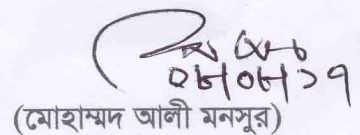 ০৮/০৮/১৭
(মোহাম্মদ আলী মনসুর)